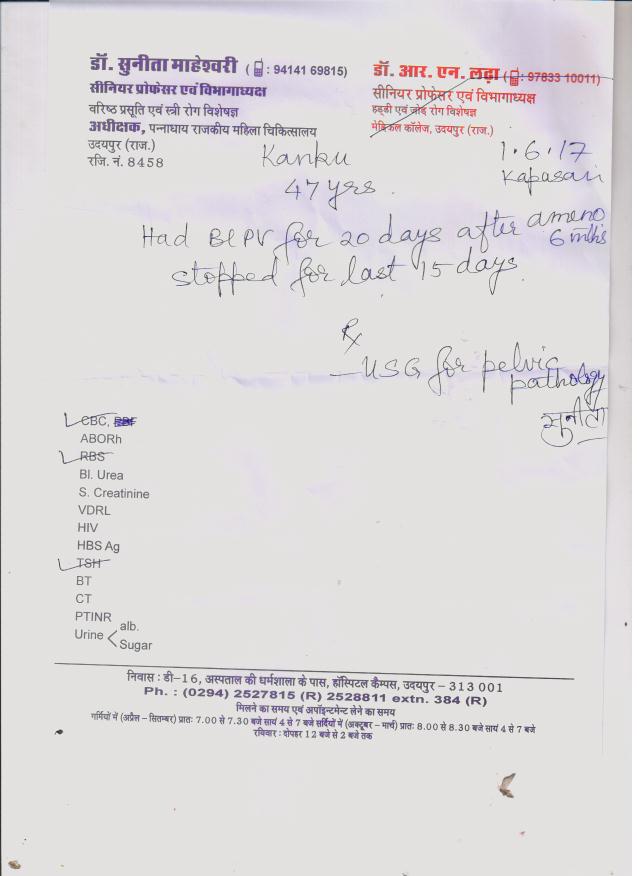 डॉ. सुनीता माहेश्वरी ( : 94141 69815)
सीनियर प्रोफेसर एवं विभागाध्यक्ष
वरिष्ठ प्रसूति एवं स्त्री रोग विशेषज्ञ
अधीक्षक, पन्नाधाय राजकीय महिला चिकित्सालय
उदयपुर (राज.)
रजि. नं. 8458
डॉ. आर. एन. लढ़ा ( : 97833 10011)
सीनियर प्रोफेसर एवं विभागाध्यक्ष
हड्डी एवं जोड़ रोग विशेषज्ञ
मेडिकल कॉलेज, उदयपुर (राज.)
Kanku
1.6.17
Kapasan
47 yrs.
Had Bl PV for 20 days after ameno
6 mths
stopped for last 15 days.
Rx
– USG for pelvic
pathology
सुनीता
CBC,
ABORh
RBS
Bl. Urea
S. Creatinine
VDRL
HIV
HBS Ag
TSH
BT
CT
PTINR
Urine < alb.
Sugar
निवास : डी-16, अस्पताल की धर्मशाला के पास, हॉस्पिटल कैम्पस, उदयपुर – 313 001
Ph. : (0294) 2527815 (R) 2528811 extn. 384 (R)
मिलने का समय एवं अपॉइन्टमेन्ट लेने का समय
गर्मियों में (अप्रैल – सितम्बर) प्रातः 7.00 से 7.30 बजे सायं 4 से 7 बजे सर्दियों में (अक्टूबर – मार्च) प्रातः 8.00 से 8.30 बजे सायं 4 से 7 बजे
रविवार : दोपहर 12 बजे से 2 बजे तक